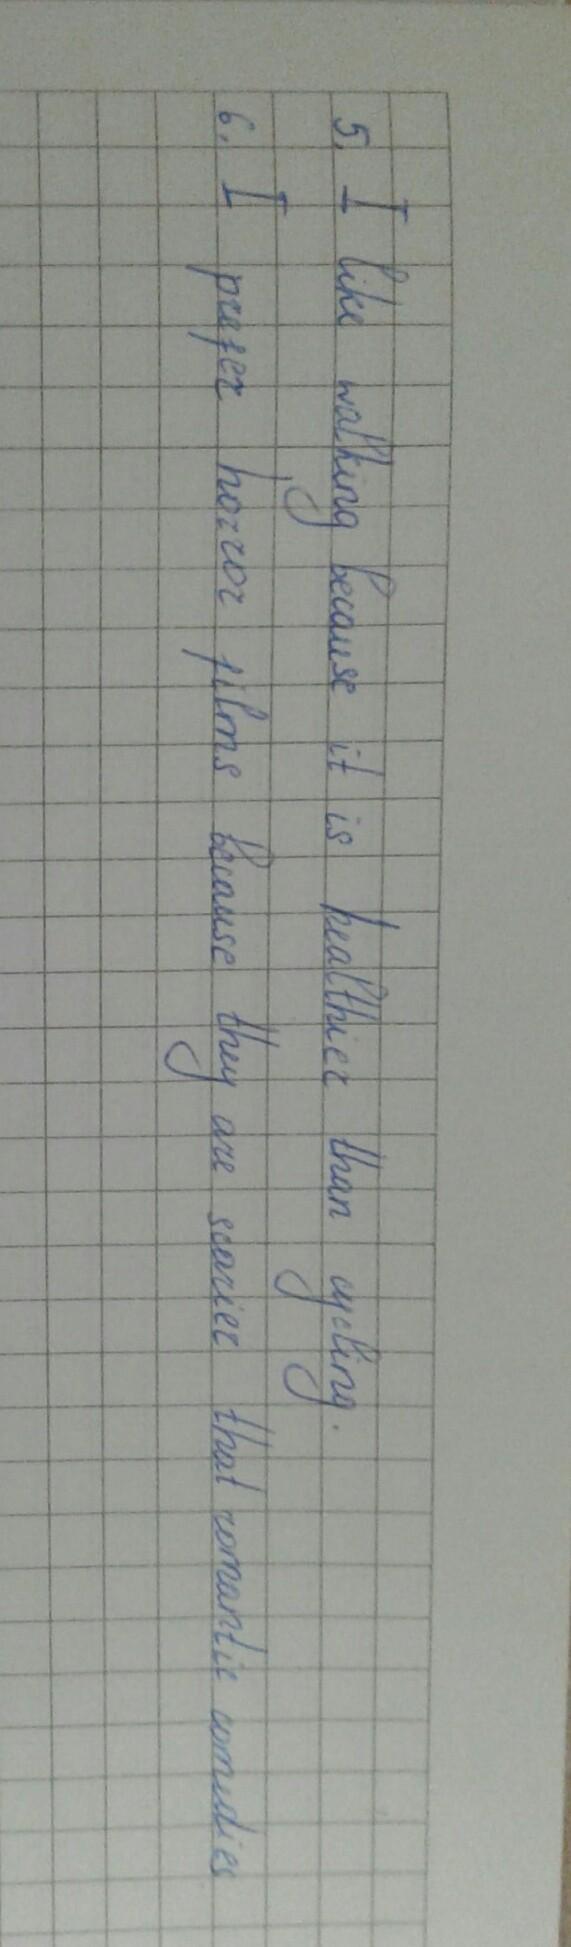 5. I like walking because it is healthier than cycling.
6. I prefer horror films because they are scarier that romantic comedies